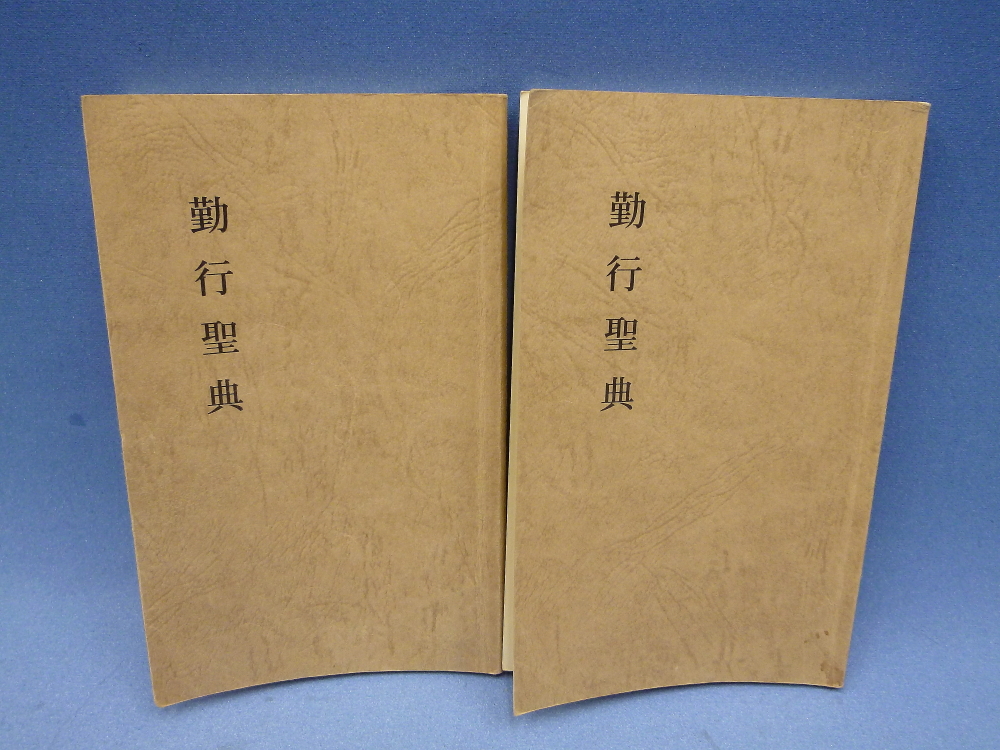 勤行聖典
勤行聖典